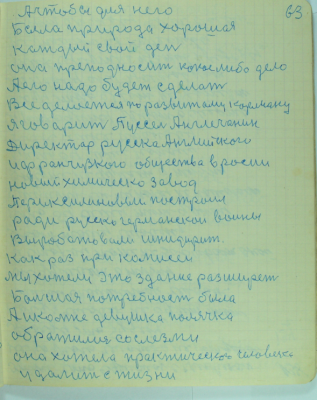 63
А чтобы для него
Была природа хорошая
Каждый свой ден
она преподносит какое либо дело
Его надо будет сделат
Все делается по развитому карману
Я говарит Пуссел Англичанин
Директар русска Английского
и французкого общества в росии
новый химическо завод
построили
ради русско германской войны
Вырабатовали
Как раз при комисси
Мы хотели это здание разширет
Болшая потребност была
А их может девушка полячка
обратилис со слезми
она хотела практическова человека
удалит с жизни